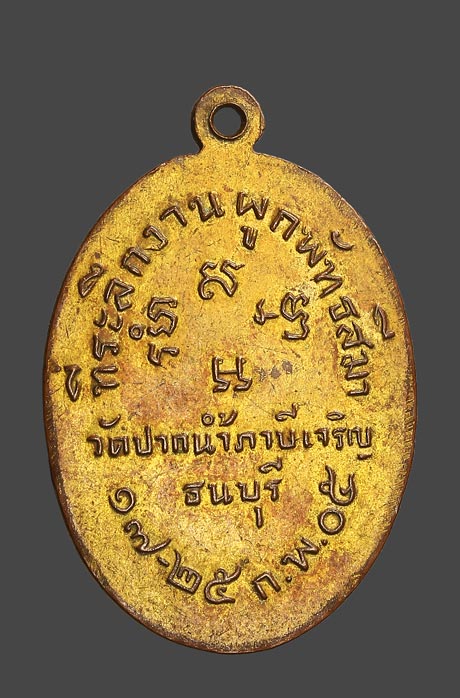 ที่ระลึกงานผูกพัทธสีมา
วัดปากน้ำภาษีเจริญ
ธนบุรี
๑๗-๒๕ ก.พ.๐๕